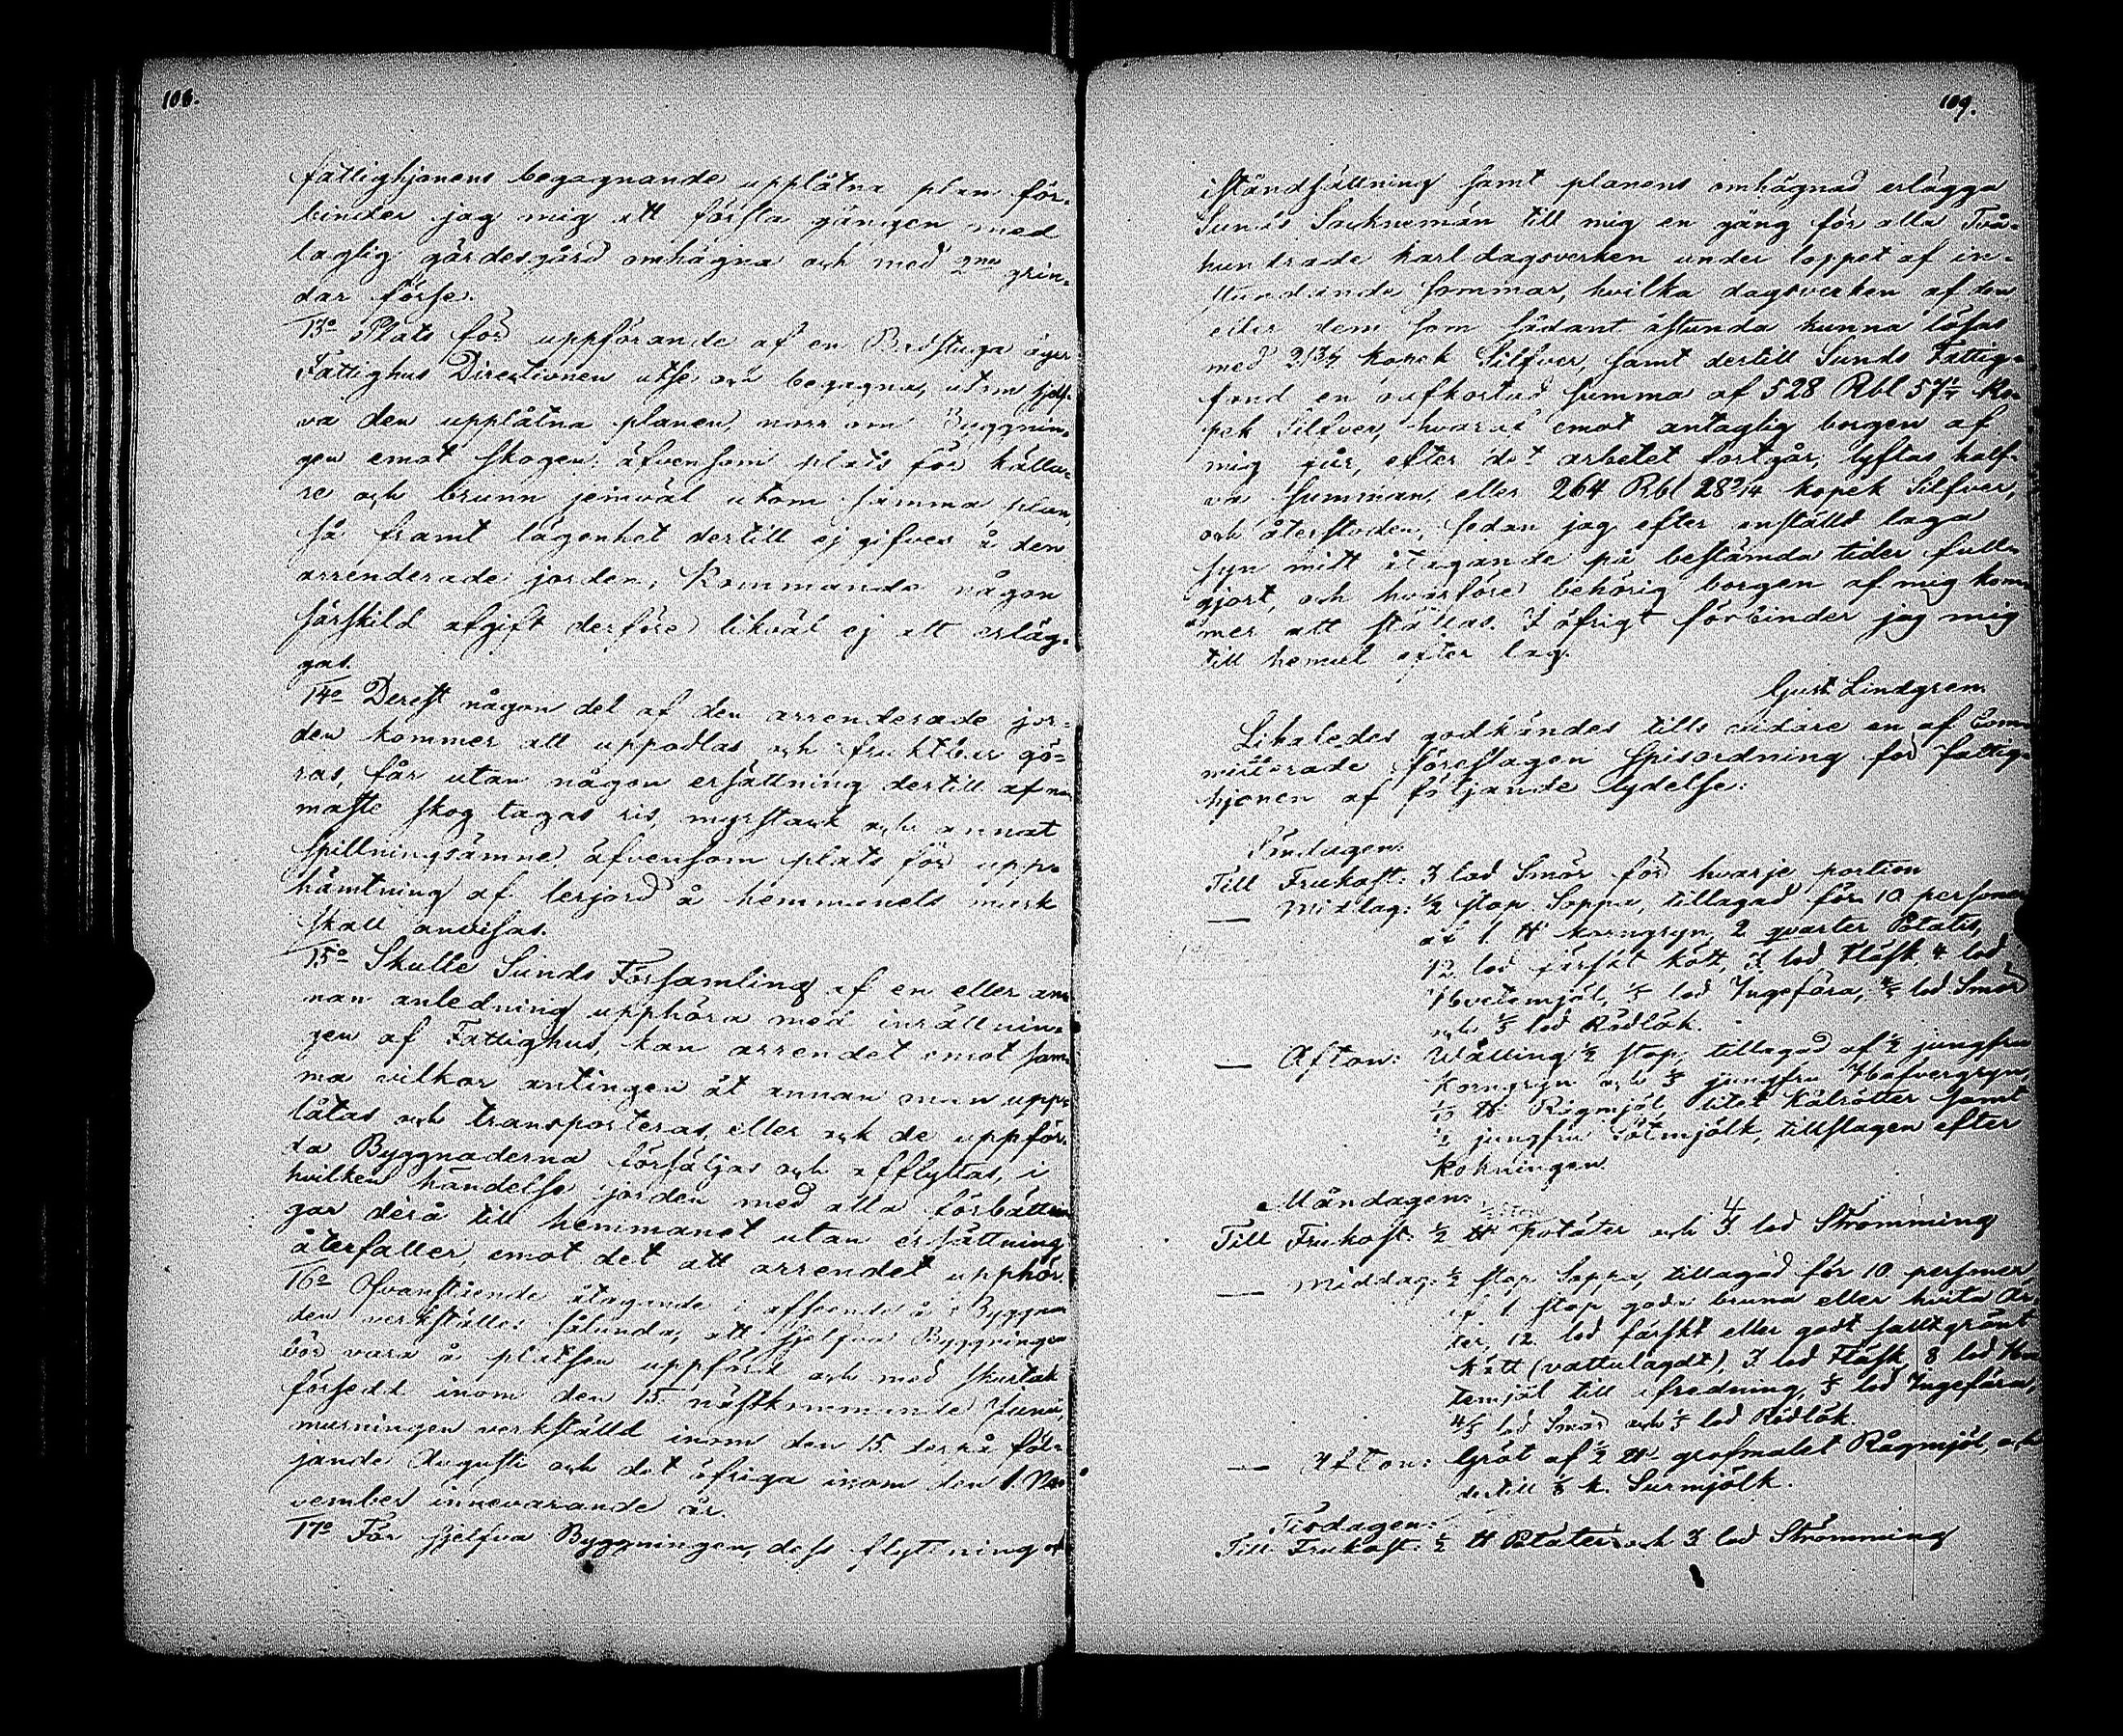 108.
fattighjonens begagnande upplåtna plan för-
binder jag mig att första gången med
laglig gärdesgård omhägna och med 2ne grin-
dar förse.
13o Plats för uppförande af en Badstuga äger
Fattighus Directionen utse och begagna, utom sjelf-
va den upplåtna planen, norr om Byggnin-
gen emot skogen; äfvensom plats för källa-
re och brunn jemväl utom samma plan,
så framt lägenhet dertill ej gifves å den
arrenderade jorden; Kommande någon
särskild afgift derföre likväl ej att erläg-
gas.
14o Derest någon del af den arrenderade jor-
den kommer att uppodlas och fruktbar gö-
ras, får utan någon ersättning dertill af när-
maste skog tagas ris, myrstack och annat
spillningsämne, äfvensom plats för upp-
hämtning af lerjord å hemmanets mark
skall anvisas.
15o Skulle Sunds Församling af en eller an-
nan anledning upphöra med inrättnin-
gen af Fattighus, kan arrendet emot sam-
ma vilkor antingen åt annan man upp-
låtas och transporteras, eller och de uppför-
da Byggnaderna försäljas och afflyttas, i
hvilken händelse jorden med alla förbättrin-
gar derå till hemmanet utan ersättning
återfaller, emot det att arrendet upphör.
16o Ofvanstående åtagande i afseende å Byggna-
den verkställes sålunda, att sjelfva Byggningen
bör vara å platsen uppförd och med skurtak
försedd inom den 15. nästkommande Junii,
murningen verkställd inom den 15. derpå föl-
jande Augusti och det öfriga inom den 1. No-
vember innevarande år.
17o För sjelfva Byggningen, dess flyttning och
109.
iståndsättning samt planens omhägnad erlägga
Sunds Socknemän till mig en gång för alla Två-
hundrade karl dagsverken under loppet af in-
stundande sommar, hvilka dagsverken af den
eller dem som sådant åstunda kunna lösas
med 21 3/7 kopek Silfver, samt dertill Sunds Fattig-
fond en oafkortad summa af 528 Rbl 57 1/7 Ko-
pek Silfver, hvaraf emot antaglig borgen af
mig får, efter det arbetet fortgår, lyftas half-
va summan, eller 264 Rbl 28 8/14 kopek Silfver,
och återstoden, sedan jag efter anställd laga
syn mitt åtagande på bestämda tider full-
gjort, och hvarföre behörig borgen af mig kom-
mer att ställas. I öfrigt förbinder jag mig
till hemul efter lag.
Gust. Lindgren
Likaledes godkändes tills vidare en af Com-
mitterade föreslagen Spisordning för fattig-
hjonen af följande lydelse:
Söndagen:
Till Frukost: 3 lod Smör för hvarje portion
— Middag: 1/2 stop Soppa, tillagad för 10 personer
af 1. ℔ korngryn, 2 qvarter Potates,
12. lod färskt kött, 3 lod Fläsk, 4 lod
Hvetemjöl, 1/5 lod Ingefära, 4/5 lod Smör
och 1/5 lod Rödlök.
— Afton: Wälling 1/2 stop, tillagad af 1/2 jungfru
korngryn och 1/5 jungfru Hafvergryn,
℔ Rågmjöl, litet Kålrötter samt
jungfru Sötmjölk, tillslagen efter
kokningen.
Måndagen:
4
Till Frukost: 1/2 ℔ Potäter och 3 lod Strömming
— Middag: 1/2 stop Soppa, tillagad för 10 personer
af 1 stop goda bruna eller hvita Är-
ter, 12. lod färskt eller godt saltgrönt
kött (vattulagdt), 3 lod Fläsk, 8 lod Hve-
temjöl till afredning, 1/5 lod Ingefära,
4/5 lod Smör och 1/5 lod Rödlök.
— Afton: Gröt af 1/2 ℔ grofmalet Rågmjöl, och
dertill k. Surmjölk.
Tisdagen:
Till Frukost: 1/2 ℔ Potäter och 3 lod Strömming